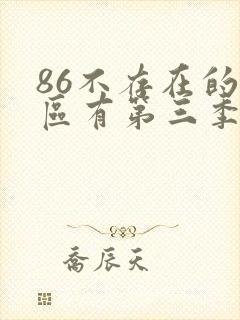 86不存在的
區有第三季
喬辰天